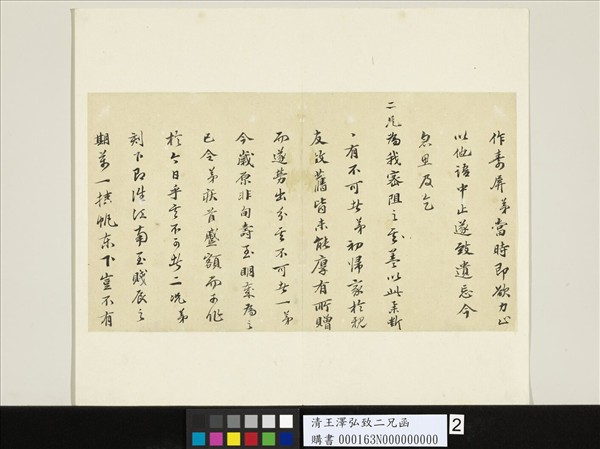 作壽屏弟當時即欲力止
以他語中止遂致遺忘今
忽思及乞
二兄為我阻之蓋以此舉斷
、有不可者弟初歸家於親
友故舊皆未能厚有所贈
而遂勞出分其不可者一弟
今歲原非旬壽至明歲為之
已令弟疾首蹙額而可作
於今日乎其不可者二况弟
刻下即游江南至賤辰之
期萬一掛帆東下豈不有
清王澤弘致二兄函
購書 000163N000000000
2